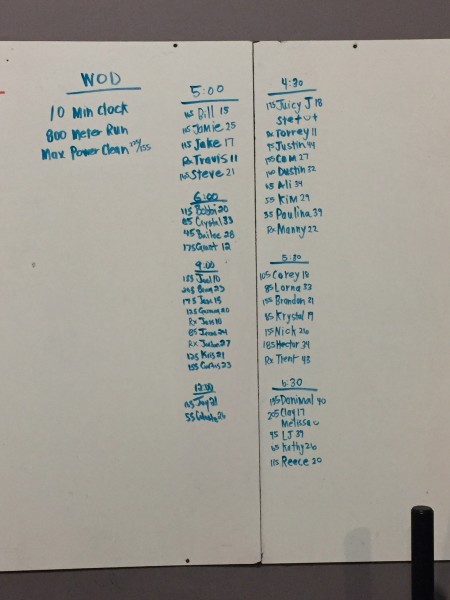 WOD
10 Min Clock
800 Meter Run
Max Power Clean /155
5:00
Bill 15
Jamie 25
115 Jake 17
Rx Travis 11
Steve 21
6:00
115 Bobbi 20
85 Crystal 33
Bailee 28
175 Grant 12
9:00
155 Joel 10
23
175 15
125 20
Rx 10
85 24
Rx 27
125 Kris 21
155 23
12:00
Jay 21
55
4:30
175 Juicy J 18
Rx Torrey 11
95 Justin 44
Cam 27
Dustin 22
65 Ali 34
55 Kim 29
55 Paulina 39
Rx Manny 22
5:30
105 Corey 18
85 Lorna 33
155 Brandon 21
85 Krystal 19
155 Nick 26
185 Hector 34
Rx Trent 43
6:30
135 Danimal 40
205 Clay 17
Melissa
95 LJ 39
65 Kathy 26
115 Reece 20